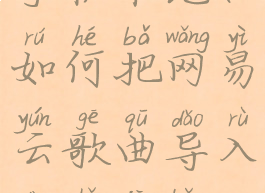 rú hé bǎ wǎng yì
如何把网易
yún gē qū dǎo rù
云歌曲导入